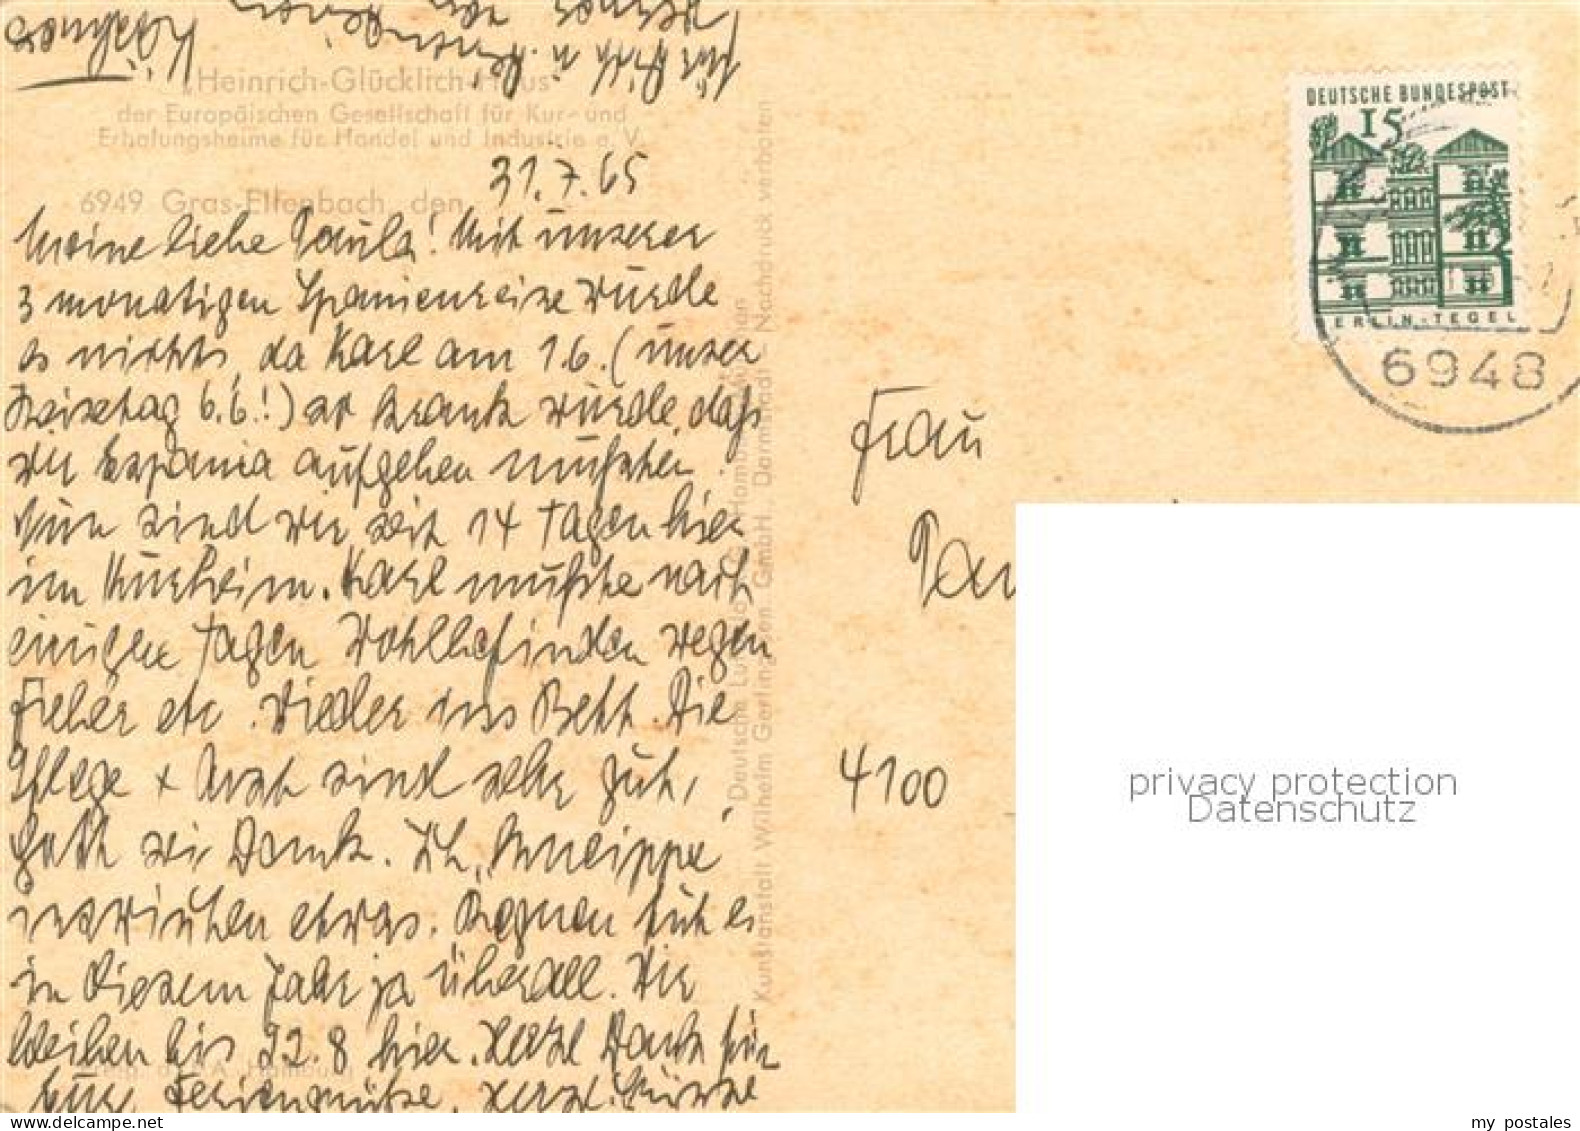 „Heinrich-Glücklich-Haus"
der Europäischen Gesellschaft für Kur- und
Erholungsheime für Handel und Industrie e. V.
6949 Gras-Ellenbach, den
31.7.65
Meine liebe Paula! Mit unserer
3 monatigen Spanienreise wurde
es nichts, da Karl am 1.6. (unser
Reisetag 6.6.!) so krank wurde, daß
wir Espania aufgeben mußten.
Nun sind wir seit 14 Tagen hier
im Kurheim. Karl mußte nach
einigen Tagen Wohlbefinden wegen
Fieber etc. wieder ins Bett. Die
Pflege + Arzt sind sehr gut,
Gott sei Dank. Ich „kneippe"
inzwischen etwas. Regnen tut es
in diesem Jahr ja überall. Wir
bleiben bis 22.8 hier. Herzl Dank für
Eure Feriengrüße, herzl. Grüße
für Dich u.
Deutsche
Kunstanstalt Wilhelm Gerling, GmbH, Darmstadt - Nachdruck verboten
DEUTSCHE BUNDESPOST
15
BERLIN-TEGEL
6948
Frau
4100
privacy protection
Datenschutz
my postales